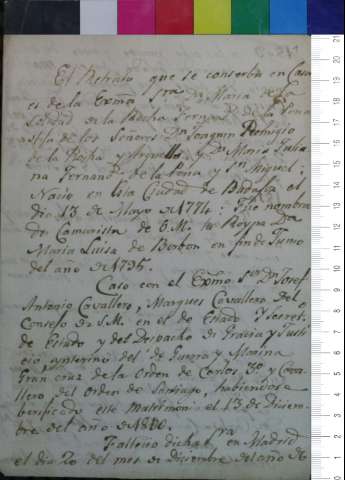 El Retrato que se conserba en Casa
es de la Exma Sra Da Maria de la
Soledad de la Rocha Fernz de la Pena
de los Señores Dn Joaquin Remigio
de la Rocha y Arguello, y Da Maria Julia
na Fernand. de la Pena y Sn Miguel:
Nacio en Esta Ciudad de Badajoz el
dia 13 de Mayo de 1774: Fue nombra
da Camarista de S.M. la Reyna Da
Maria Luisa de Borbon en fin de Junio
del año de 1795.
Caso con el Exmo Sr Dn Josef
Antonio Cavallero, Marques Cavallero del
Consejo de S.M. en el de Estado y Secret.
de Estado y del Despacho de Gracia y Just
icia ynterino del de Guerra y Marina
Gran cruz de la Orden de Carlos 3o y Cava
llero del orden de Santiago, habiendose
berificado este Matrimon. el 13 de Diciem-
bre del año de 1800.
Fallecio dicha Sra en Madrid
el dia 20 del mes de Diciembre del año de